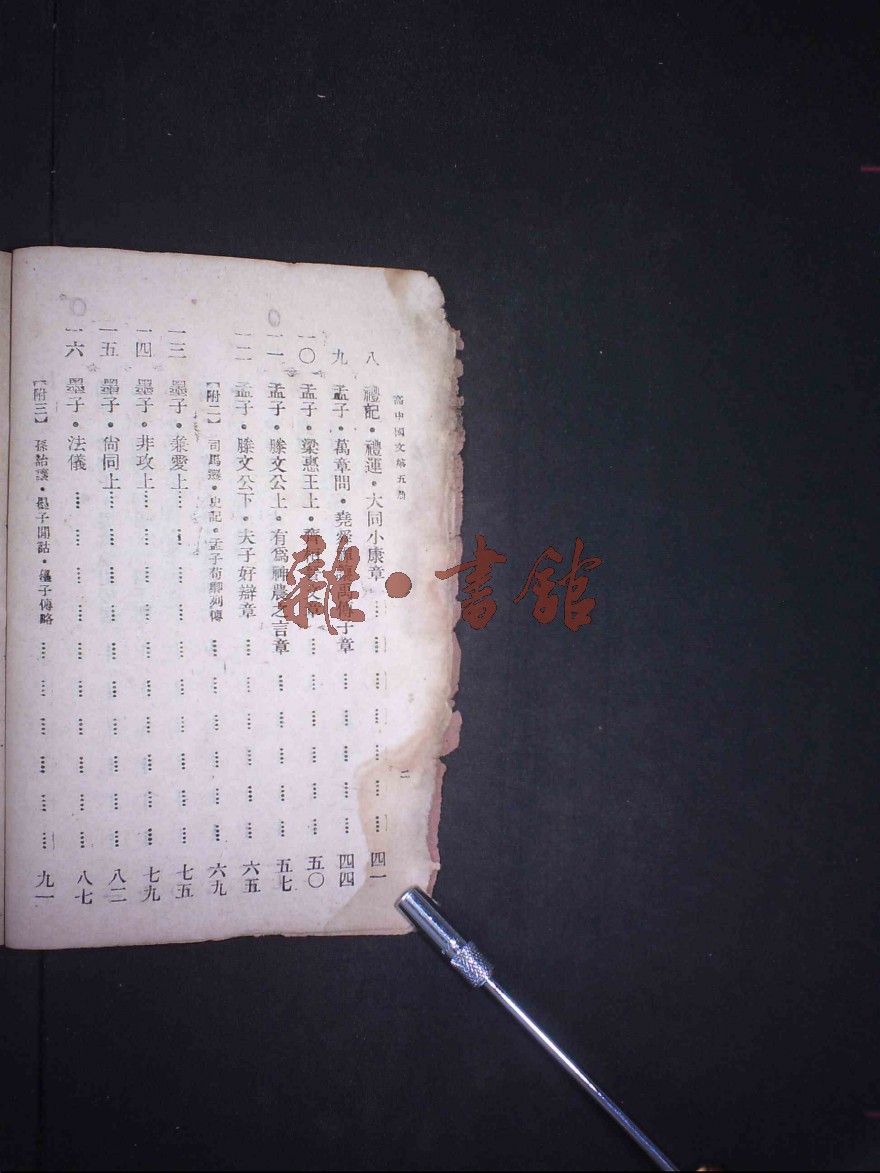 高中國文第五冊
二
八 禮記·禮運·大同小康章 四一
九 孟子·萬章問·堯 子章 四四
一〇 孟子·梁惠王上· 章 五〇
一一 孟子·滕文公上·有爲神農之言章 五七
一二 孟子·滕文公下·夫子好辯章 六五
【附二】 司馬遷·史記·孟子荀卿列傳 六九
一三 墨子·兼愛上 七五
一四 墨子·非攻上 七九
一五 墨子·尙同上 八二
一六 墨子·法儀 八七
【附三】 孫詒讓·墨子閒詁·墨子傳略 九一
雜·書館